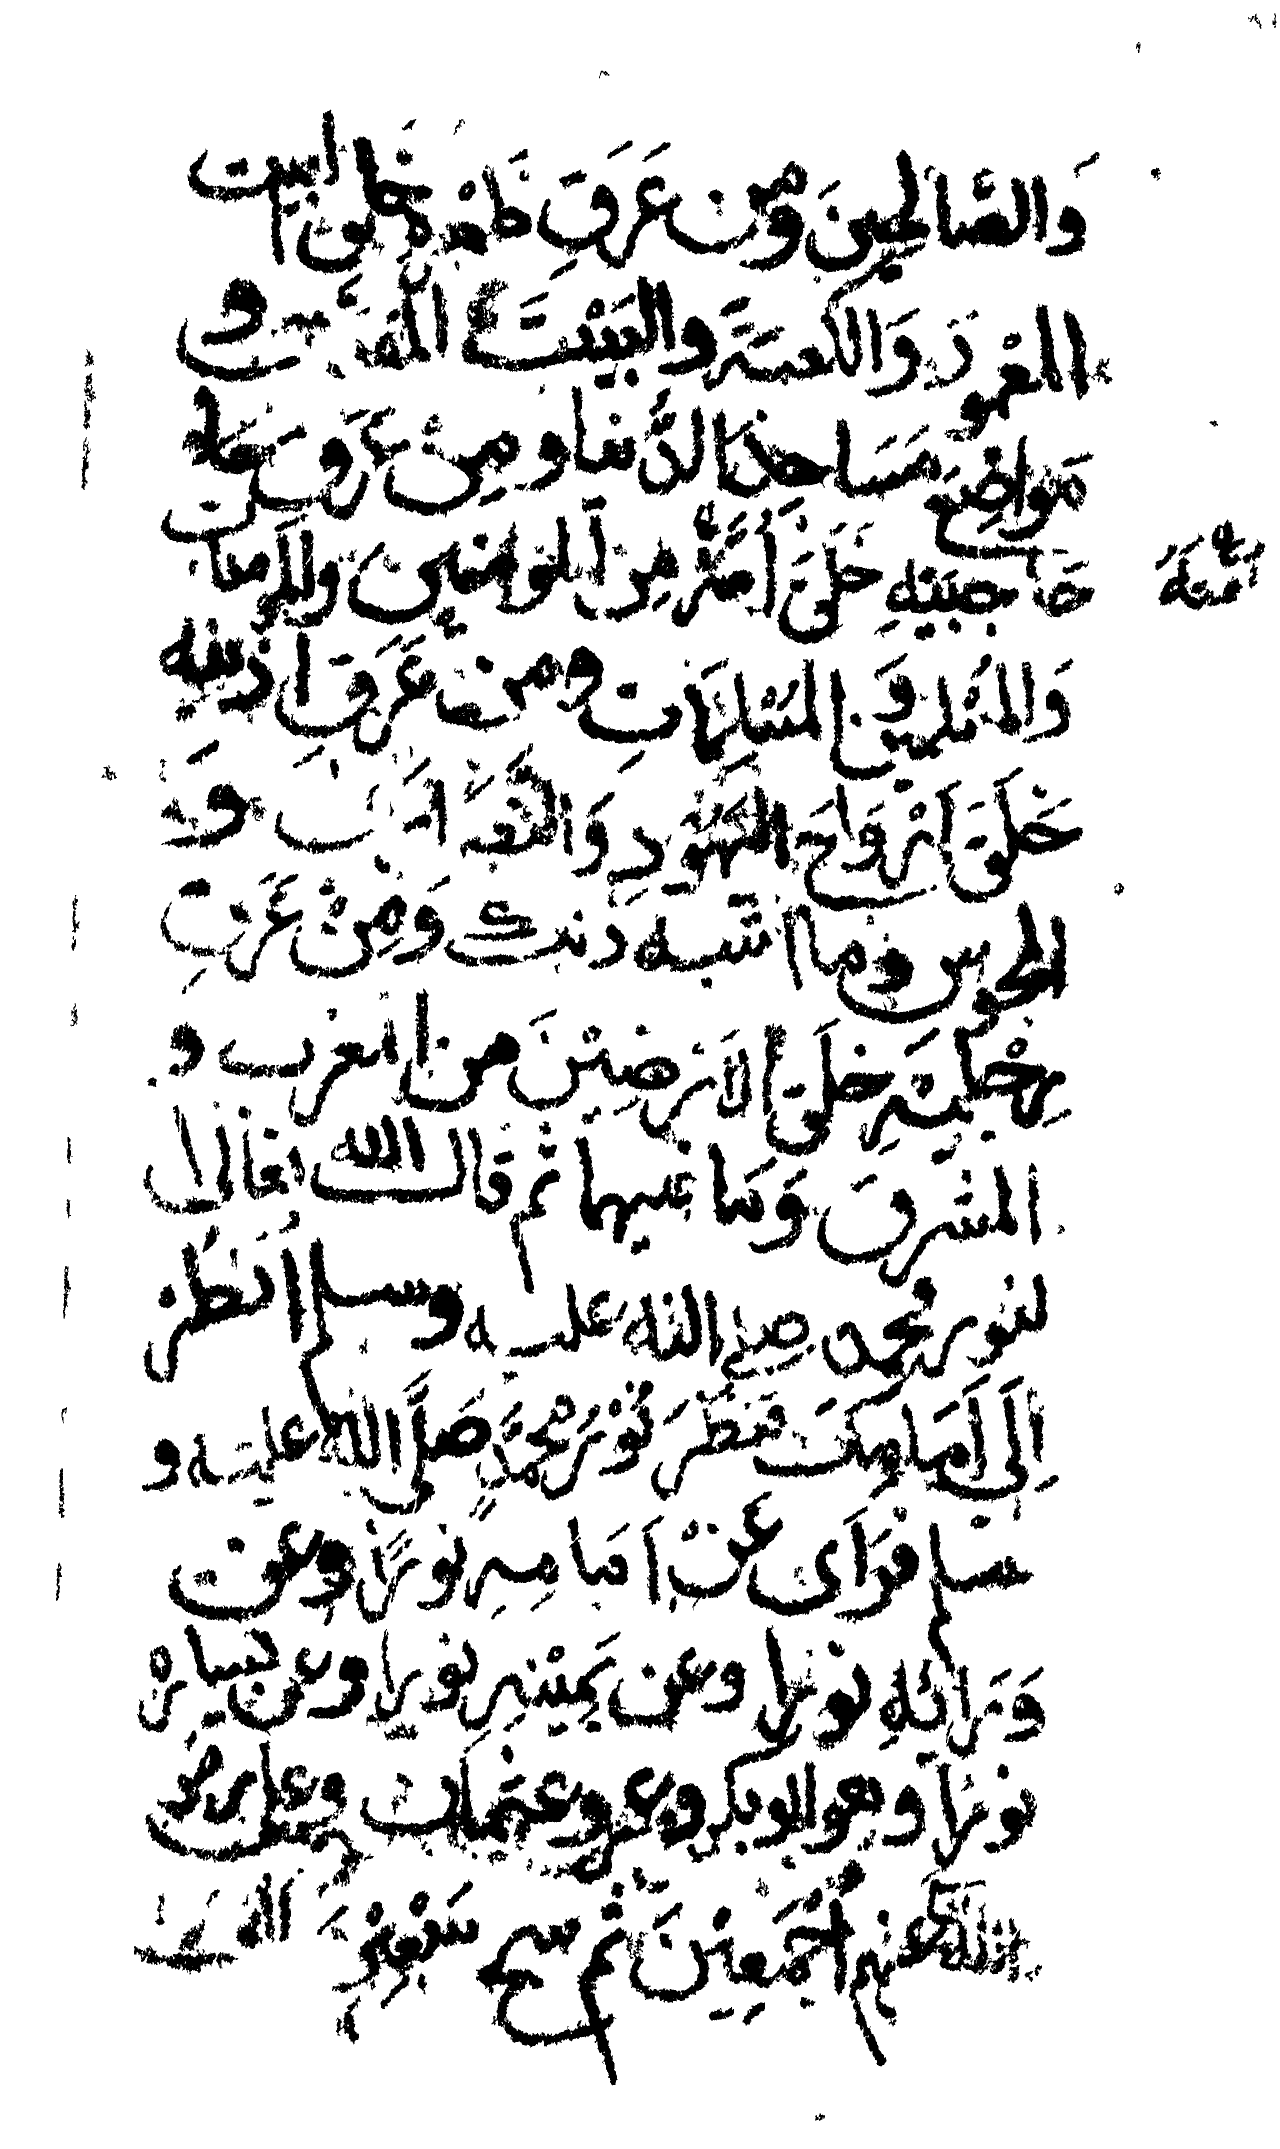 وَالصَّالِحِينَ وَمِن عَرَقِ ظَهْرِهِ خَلَقَ البيت
المَعْمُورَ وَالكَعبَةَ وَالبَيْتَ المقدس و
مَوَاضِعَ مَسَاجِدَ الدُّنيَا وَمِنْ عَرَقِ
حَاجِبَيْهِ خَلَقَ أُمَّتَهُ مِنَ المُؤمِنِينَ وَالمُؤمِنَات
وَالمُسْلِمِينَ وَالمُسْلِمَاتِ وَمِن عَرَقِ أُذُنَيْهِ
خَلَقَ أَرْوَاحَ اليَهُودِ وَالنَّصَارَى وَ
المجوس وَمَا أشبه ذلك وَمِنْ عَرَقِ
رِجْلَيْهِ خَلَقَ الأَرَضِينَ مِنَ المغرب و
المشرق وَمَا فيهما ثم قَالَ الله تعالى
لنور محمد صلى الله عليه وسلم أُنْظُرْ
إِلَى أَمَامِكَ فَنَظَرَ نُوْرُ مُحَمَّدٍ صَلَّى الله عليه و
سلم فَرَأَى عَنْ أَمَامِهِ نُورًا وعن
وَرَائِهِ نورًا وعن يَمِيْنِهِ نُورًا وعن يسارِهِ
نورًا وهو ابو بكر وعمر وعثمان وعلى رضى
الله عنهم أَجْمَعِيْنَ ثُمَّ سبح